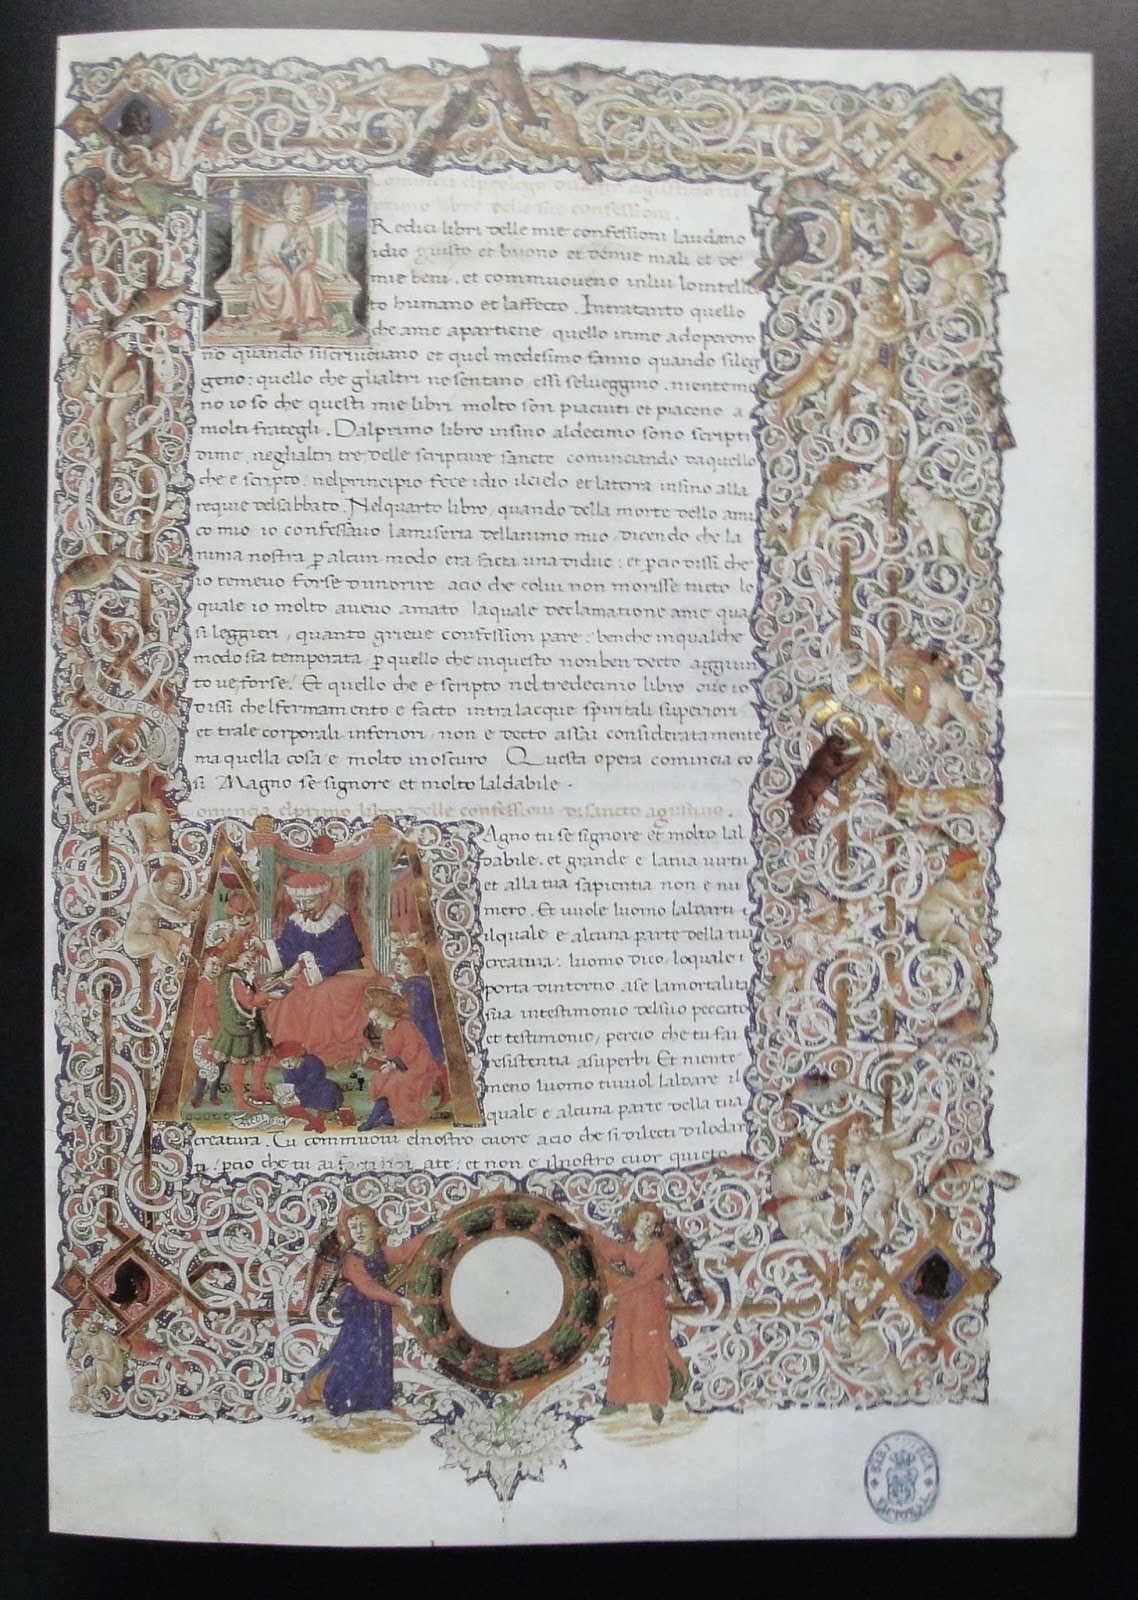 Comincia el prologo di sancto agustino nel
primo libro delle sue confessioni.
Redici libri delle mie confessioni laudano
idio giusto et buono et demie mali et de
mie beni. et commuoveno inlui lointellec
to humano et laffecto. Intratanto quello
che ame apartiene quello inme adoperoro
no quando siscriveuano et quel medesimo fanno quando sileg
geno: quello che glialtri nesentano essi selueggino. nientemo
no io so che questi mie libri molto son piaciuti et piaceno a
molti frategli. Dalprimo libro insino aldecimo sono scripti
dime. neglialtri tre delle scripture sancte cominciando daquello
che e scripto: nelprincipio fece idio ilcielo et laterra insino alla
requie delsabbato. Nelquarto libro, quando della morte dello ami
co mio io confessavo lamiseria dellanimo mio, dicendo che la
nima nostra p alcun modo era facta una didue: et pcio dissi che
io temevo forse dimorire acio che colui non morisse tucto lo
quale io molto avevo amato laquale declamatione ame qua
si leggieri, quanto grieve confession pare: benche inqualche
modo sia temperata p quello che inquesto nonben decto aggiun
to ve, forse. Et quello che e scripto nel tredecimo libro ove io
dissi chelfermamento e facto intralacque spiritali superiori
et trale corporali inferiori, non e decto assai consideratamente
ma quella cosa e molto inoscuro Questa opera comincia co
si Magno se signore et molto laldabile.
omincia elprimo libro delle confessioni disancto agustino.
Agno tu se signore et molto lal
dabile. et grande e latua virtu
et alla tua sapientia non e nu
mero. Et vuole luomo laldarti
ilquale e alcuna parte della tua
creatura: luomo dico loquale
porta dintorno ase lamortalita
sua intestimonio delsuo peccato
et testimonio, percio che tu fai
resistentia asuperbi Et niente
meno luomo tivuol laldare il
quale e alcuna parte della tua
creatura. Tu commuovi elnostro cuore acio che si dilecti dilodar
ti, pcio che tu ai facti noi ate, et non e ilnostro cuor quieto